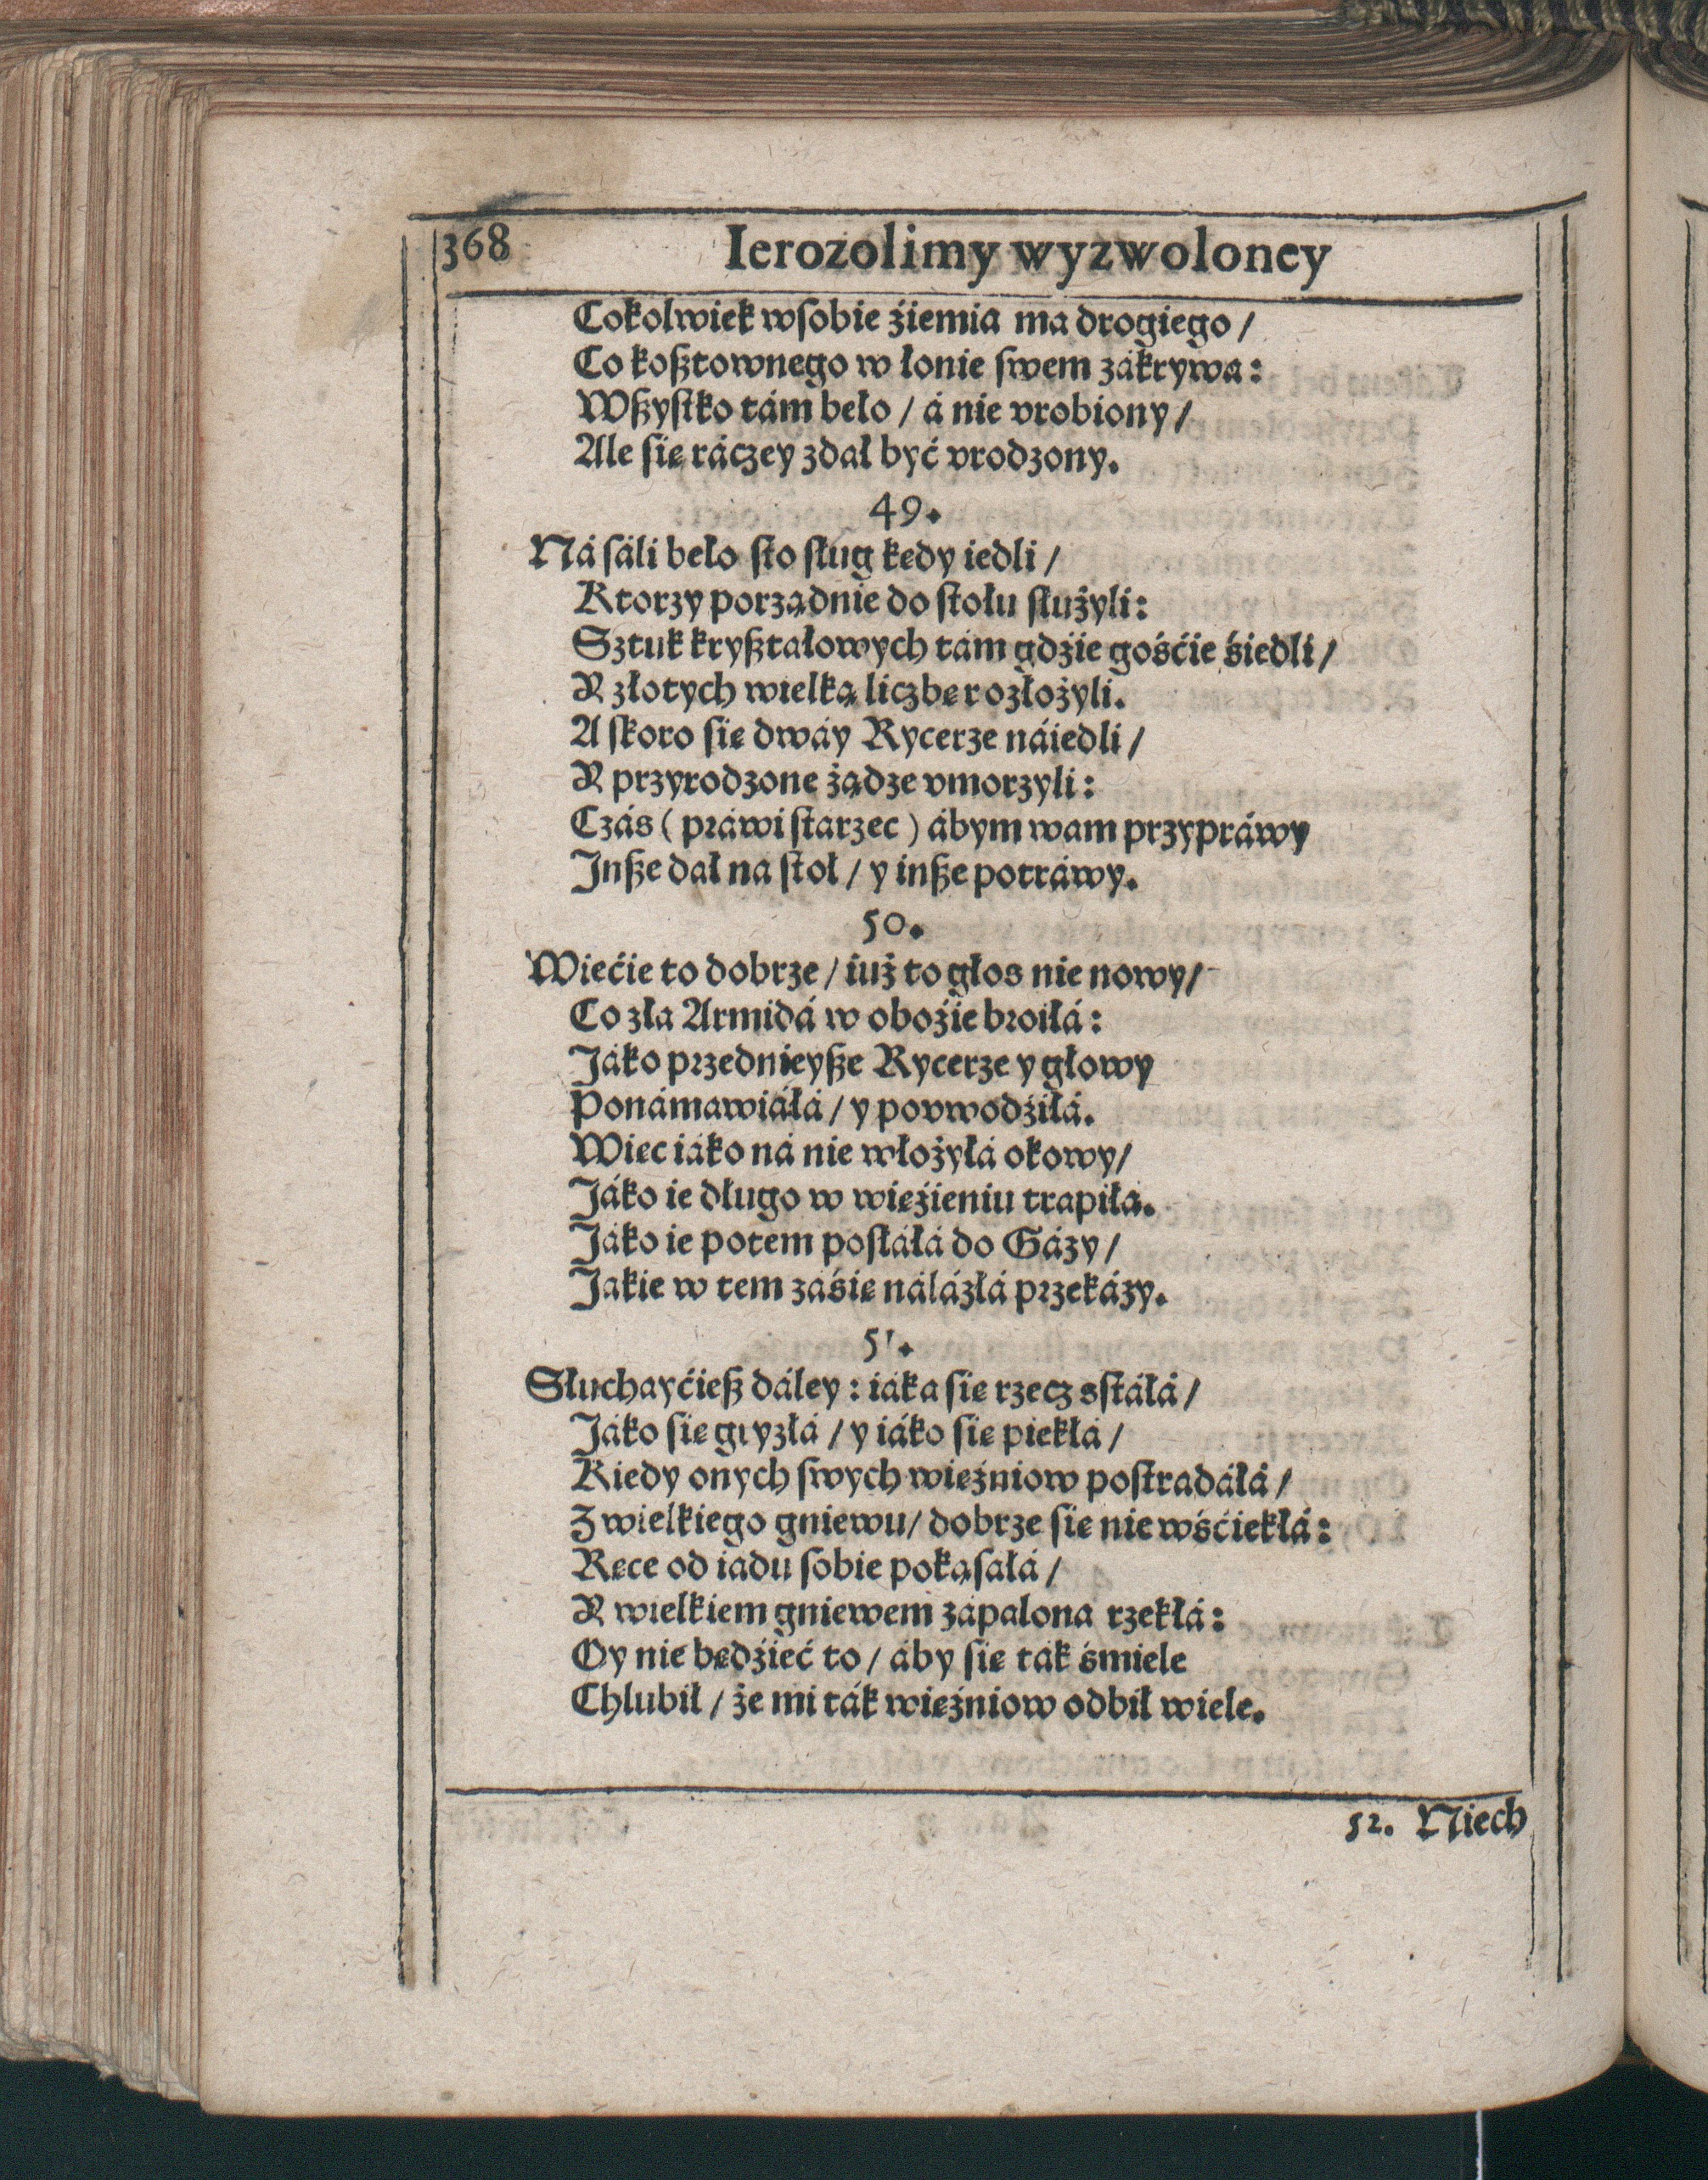 368 Ierozolimy wyzwoloney
Cokolwiek wſobie źiemia ma drogiego /
Co koßtownego w łonie ſwem zákrywa:
Wßyſtko tám beło / á nie vrobiony /
Ale ſię ráczey zdał być vrodzony.
49.
Ná ſáli beło ſto ſług kędy iedli /
Ktorzy porządnie do ſtołu ſłużyli:
Sztuk kryßtałowych tám gdźie gośćie śiedli /
Y złotych wielką liczbę rozłożyli.
A ſkoro ſię dwáy Rycerze náiedli /
Y przyrodzone żądze vmorzyli:
Czás ( práwi ſtarzec ) ábym wam przypráwy
Inße dał na ſtoł / y inße potráwy.
50.
Wiećie to dobrze / iuż to głos nie nowy /
Co zła Armidá w oboźie broiłá:
Jáko przednieyße Rycerze y głowy
Ponámawiáłá / y povwodźiłá.
Więc iáko ná nie włożyłá okowy /
Jáko ie długo w więźieniu trapiłá.
Jáko ie potem poſłáłá do Gázy /
Jakie w tem záśię nálázłá przekázy.
51.
Słuchayćieß dáley : iáka ſię rzecz sſtáłá /
Jáko ſię gryzłá / y iáko ſię piekłá /
Kiedy onych ſwych więźniow poſtradáłá /
Z wielkiego gniewu / dobrze ſię nie wśćiekłá:
Ręce od iadu ſobie pokąſałá /
Y wielkiem gniewem zápalona rzekłá:
Oy nie będźieć to / áby ſię ták śmiele
Chlubił / że mi ták więźniow odbił wiele.
52. Niech